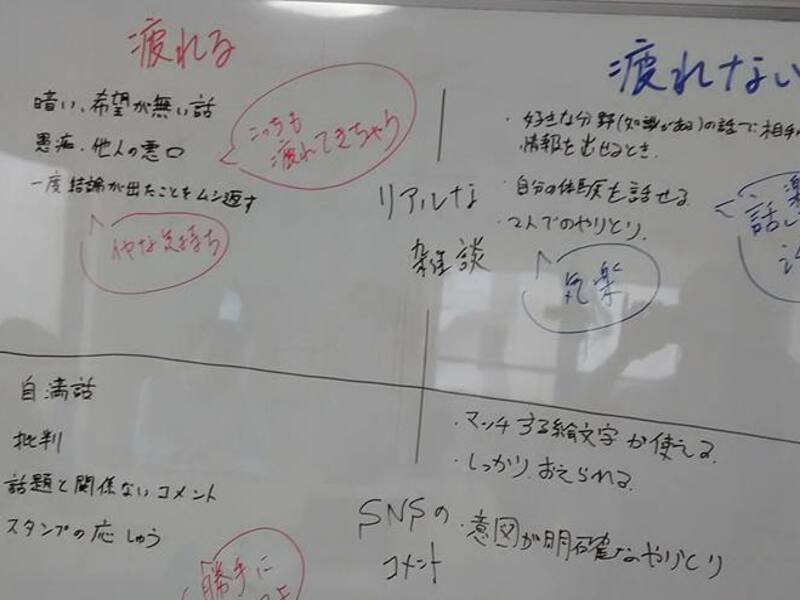 疲れる
疲れない
暗い、希望が無い話
愚痴・他人の悪口
一度結論が出たことをムシ返す
こっちも
疲れてきちゃう
イヤな気持ち
リアルな
雑談
・好きな分野(知識がある)の話で相手
情報を出せるとき。
・自分の体験を話せる
・2人でのやりとり。
気楽
楽
話し
自満話
批判
話題と関係ないコメント
スタンプの応しゅう
勝手に
SNSの
コメント
・マッチする絵文字が使える。
・しっかり
・意図が明確なやりとり